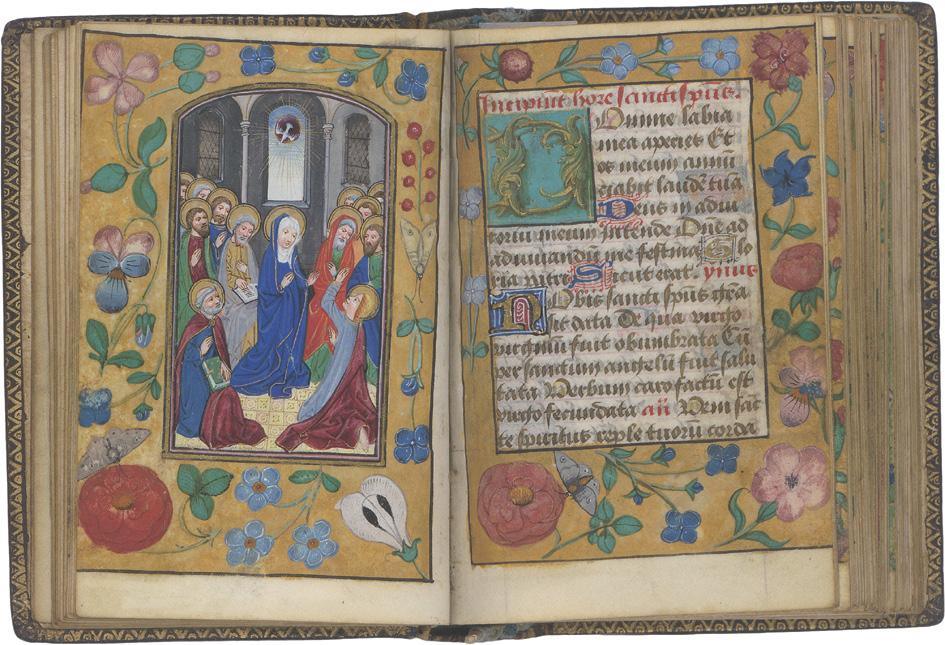 Incipiunt hore sancti spūs.
Domine labia
mea aperies Et
os meum annū
ciabit laudē tuā
Deus in adiu
toriū meum intende Dne ad
adiuuandū me festina Glo
ria patri Sicut erat. ymus
Nobis sancti spūs grā
sit data De qua virgo
virginū fuit obumbrata Cū
per sanctum angelū fuit salu
tata Verbum caro factū est
virgo fecundata añ Veni sāc
te spiritus reple tuorū corda